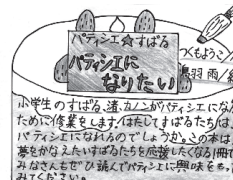 パティシエ☆すばる
パティシエに
なりたい
つくもようこ
鳥羽雨
小学生のすばる、渚、カノンがパティシエにな
ために修業をします!はたしてすばるたちは、
パティシエになれるのでしょうか。この本は、
夢をかなえたいすばるたちを応援したくなる1冊で
みなさんもぜひ読んでパティシエに興味をも
みてください。